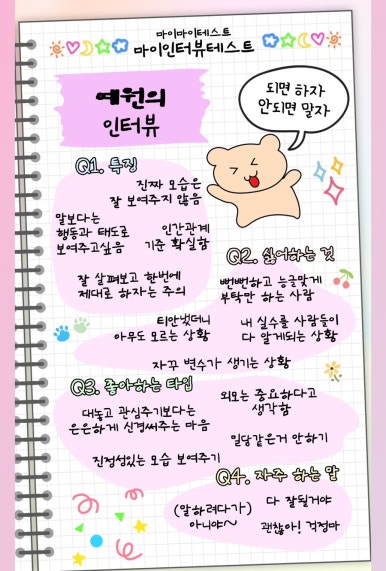 마이마이테스트
마이인터뷰테스트
예원의
인터뷰
되면 하자
안되면 말자
Q1. 특징
진짜 모습은
잘 보여주지 않음
말보다는
행동과 태도로
보여주고싶음
인간관계
기준 확실함
잘 살펴보고 한번에
제대로 하자는 주의
Q2. 싫어하는 것
뻔뻔하고 능글맞게
부탁만 하는 사람
티안냈더니
아무도 모르는 상황
내 실수를 사람들이
다 알게되는 상황
자꾸 변수가 생기는 상황
Q3. 좋아하는 타입
대놓고 관심주기보다는
은은하게 신경써주는 마음
외모는 중요하다고
생각함
밀당같은거 안하기
진정성있는 모습 보여주기
Q4. 자주 하는 말
(말하려다가)
아니야~
다 잘될거야
괜찮아! 걱정마